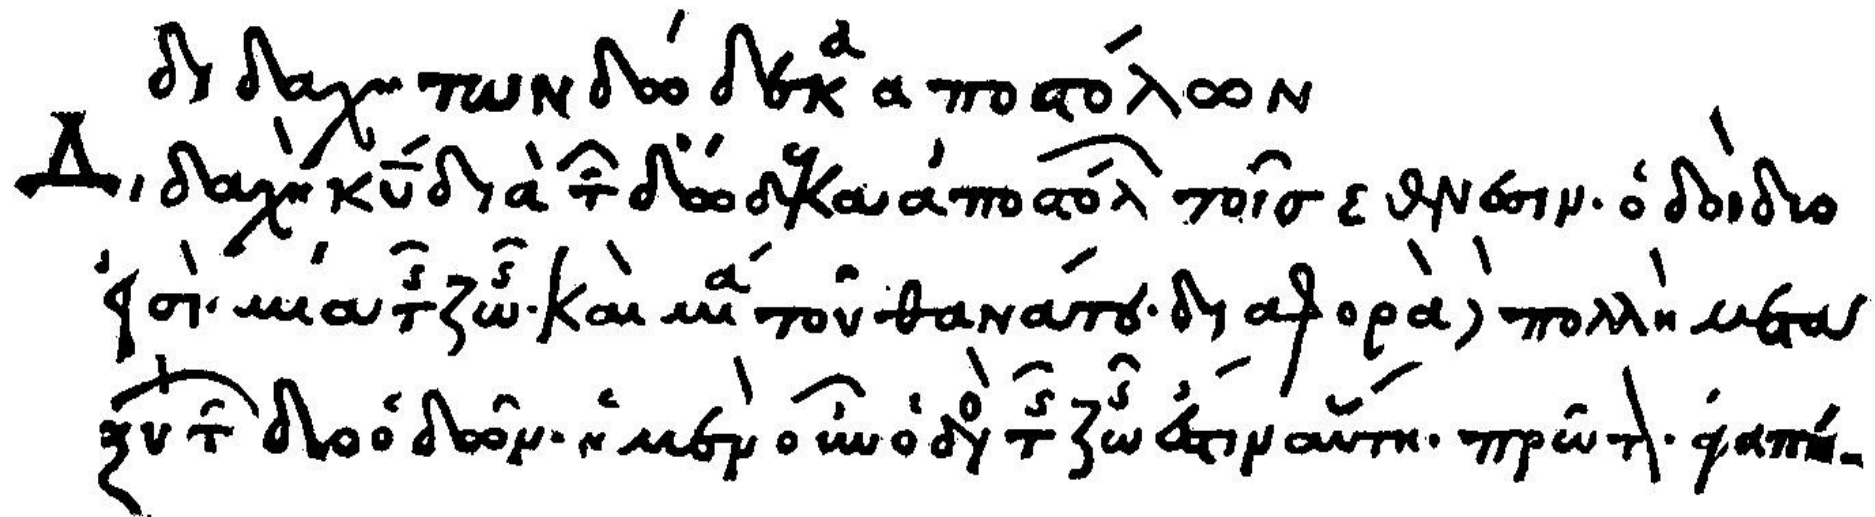 διδαχὴ τῶν δώδεκα ἀποστόλων
Διδαχὴ κ̅υ̅ διὰ τῶν δώδεκα ἀποστόλων τοῖς ἔθνεσιν. ὁδοὶ δύο
εἰσὶ. μία τῆς ζωῆς. καὶ μία τοῦ θανάτου. διαφορὰ πολλὴ μεταξὺ
τῶν δύο ὁδῶν. ἡ μὲν οὖν ὁδὸς τῆς ζωῆς ἐστιν αὕτη. πρῶτον.